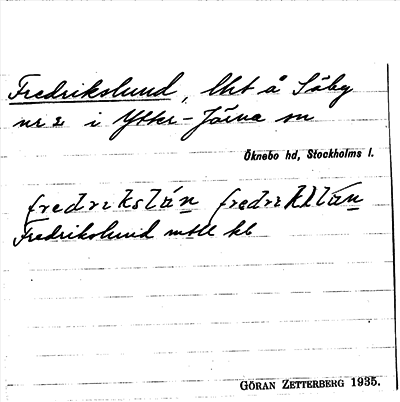 Fredrikslund, lht å Säby
nr 2 i Ytter-Järna sn
Öknebo hd, Stockholms l.
fredrikslún fredrikslún
Fredrikslund mtll kb
GÖRAN ZETTERBERG 1935.